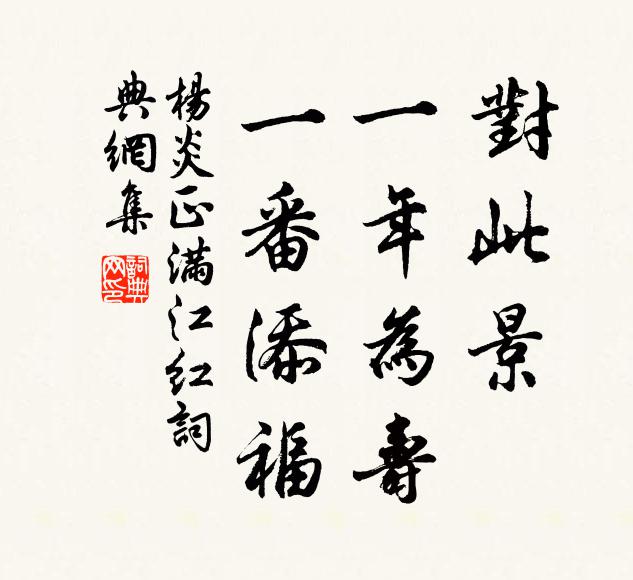 對此景
一年為壽
一番添福
楊炎正滿江紅詞
典網集
詞典網印